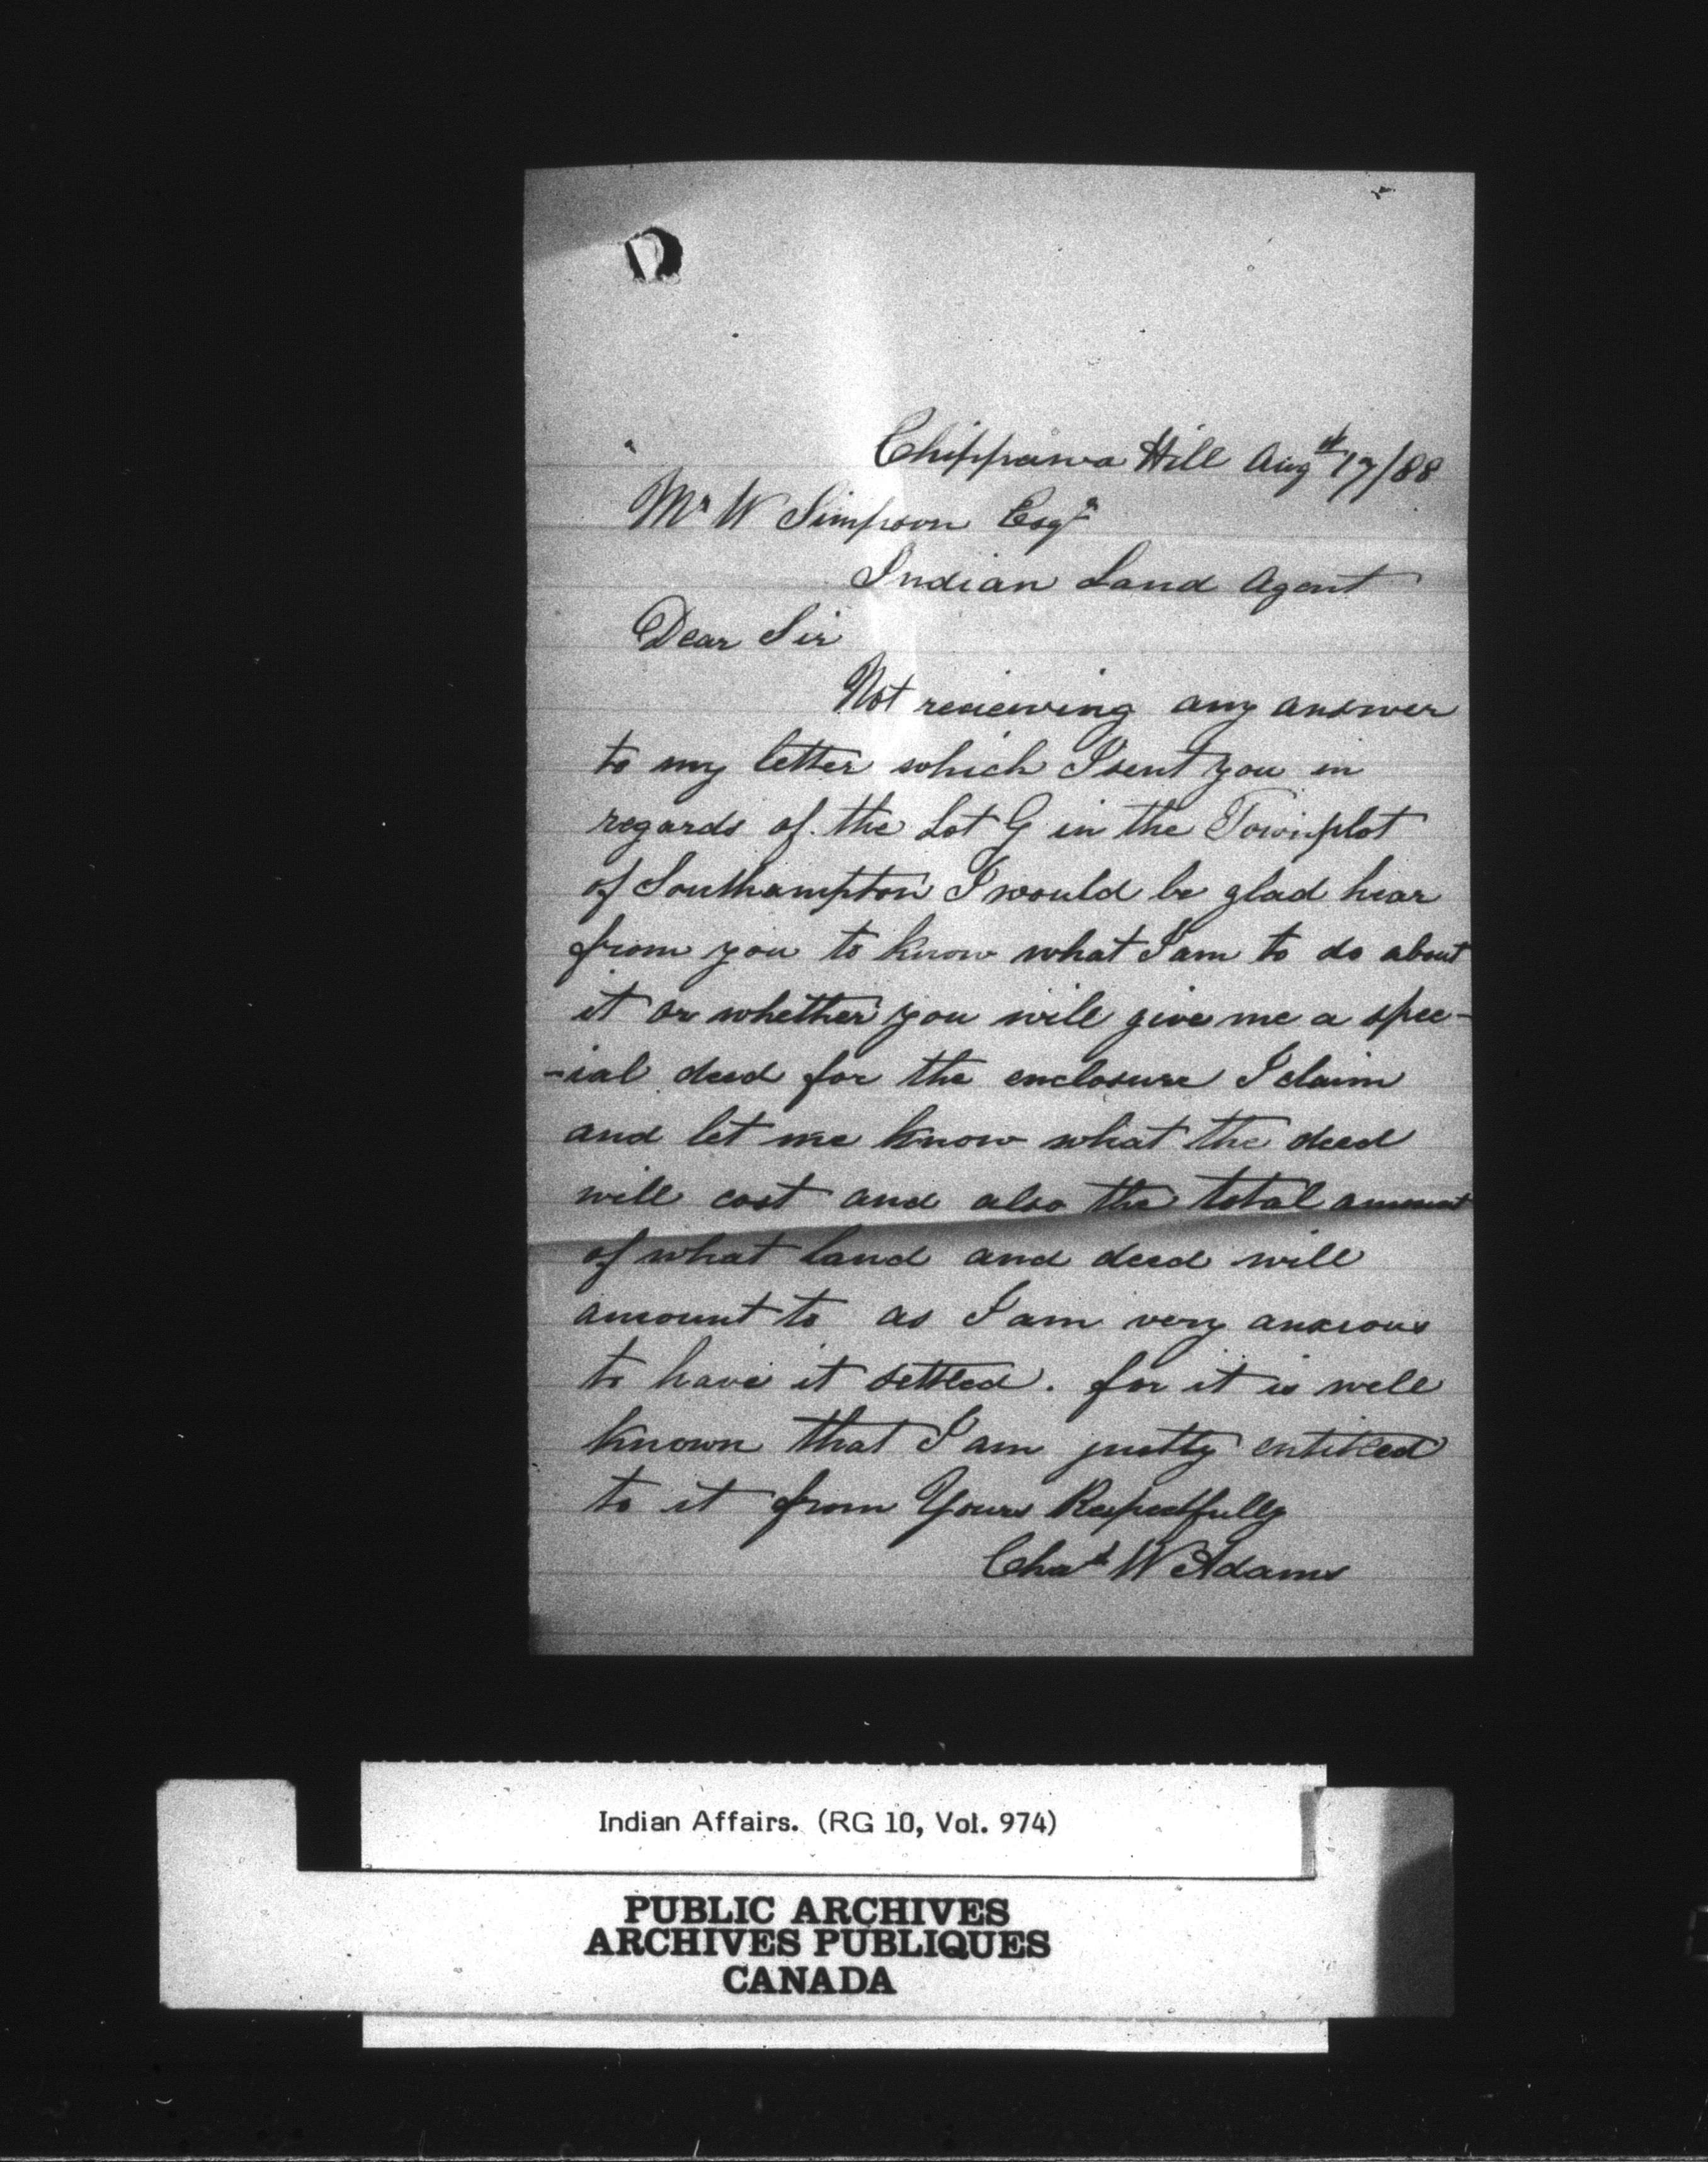 Chippawa Hill Aug st 17/88
Mr W Simpson Esqr
Indian Land Agent
Dear Sir
Not receiving any answer
to my letter which I sent you in
regards of the Lot G in the Townplot
of Southampton I would be glad hear
from you to know what I am to do about
it or whether you will give me a spec-
-ial deed for the enclosure I claim
and let me know what the deed
will cost and also the total amount
of what land and deed will
amount to as I am very anxious
to have it settled. for it is well
known that I am justly entitled
to it from Yours Respectfully
Chas W Adams
Indian Affairs. (RG 10, Vol. 974)
PUBLIC ARCHIVES
ARCHIVES PUBLIQUES
CANADA